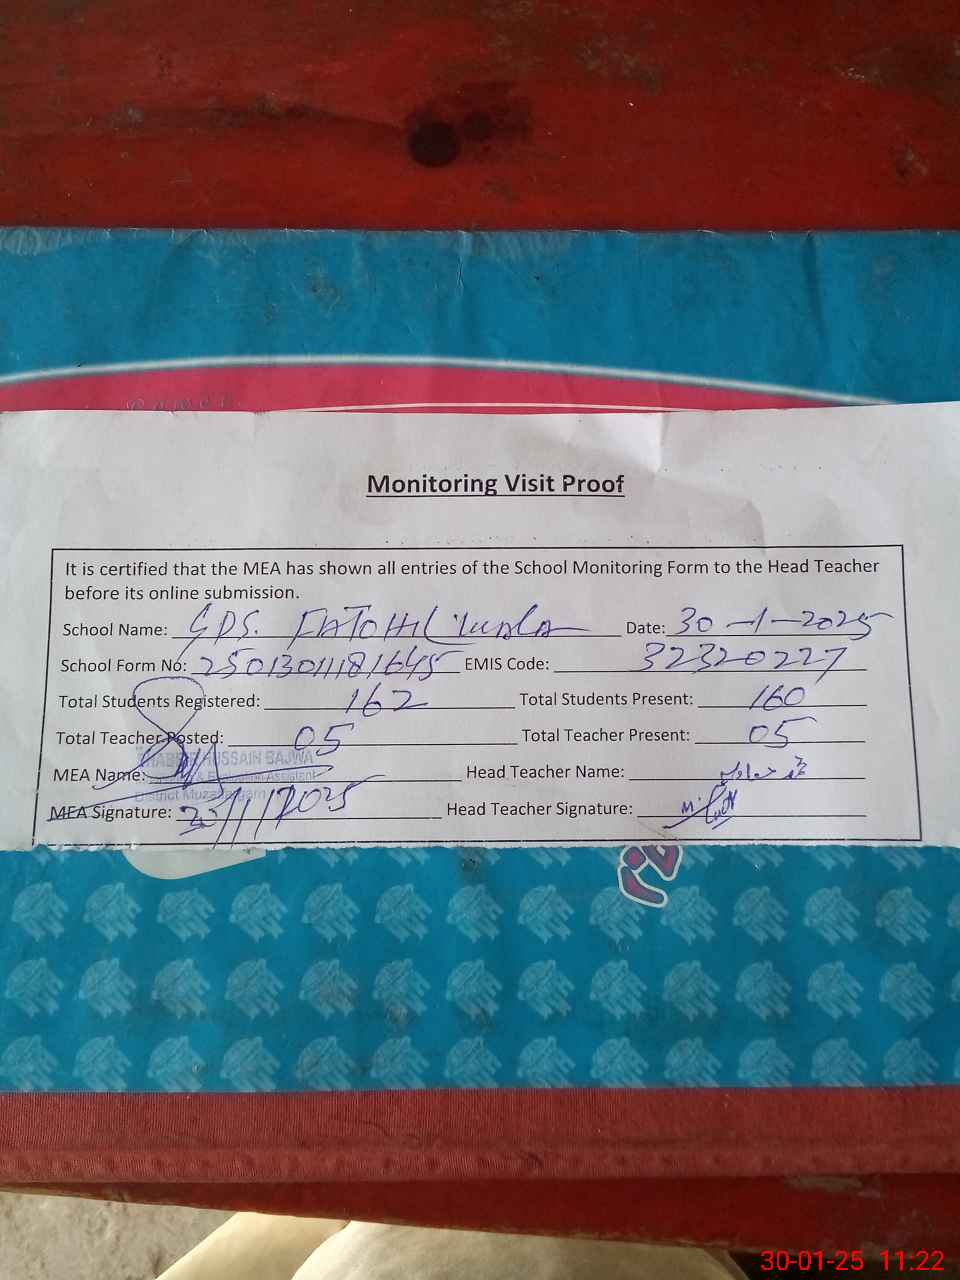 Monitoring Visit Proof
It is certified that the MEA has shown all entries of the School Monitoring Form to the Head Teacher
before its online submission.
School Name: GPS. Date: 30-1-2025
School Form No: 25013011181645 EMIS Code: 32320227
Total Students Registered: 162 Total Students Present: 160
Total Teacher Posted: 05 Total Teacher Present: 05
HUSSAIN BAJWA
MEA Name: Head Teacher Name:
& Evaluation Assistant
District Muzaffargarh
MEA Signature: /1/2025 Head Teacher Signature:
30-01-25 11:22